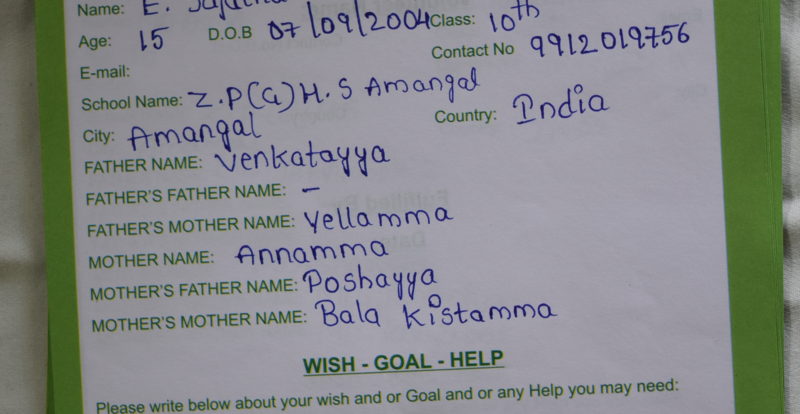 Name: E.
Age: 15 D.O.B 07/09/2004 Class: 10th
Contact No 9912019756
E-mail:
School Name: Z.P(G)H.S Amangal
City: Amangal Country: India
FATHER NAME: Venkatayya
FATHER'S FATHER NAME: -
FATHER'S MOTHER NAME: Yellamma
MOTHER NAME: Annamma
MOTHER'S FATHER NAME: Poshayya
MOTHER'S MOTHER NAME: Bala Kistamma
WISH - GOAL - HELP
Please write below about your wish and or Goal and or any Help you may need: